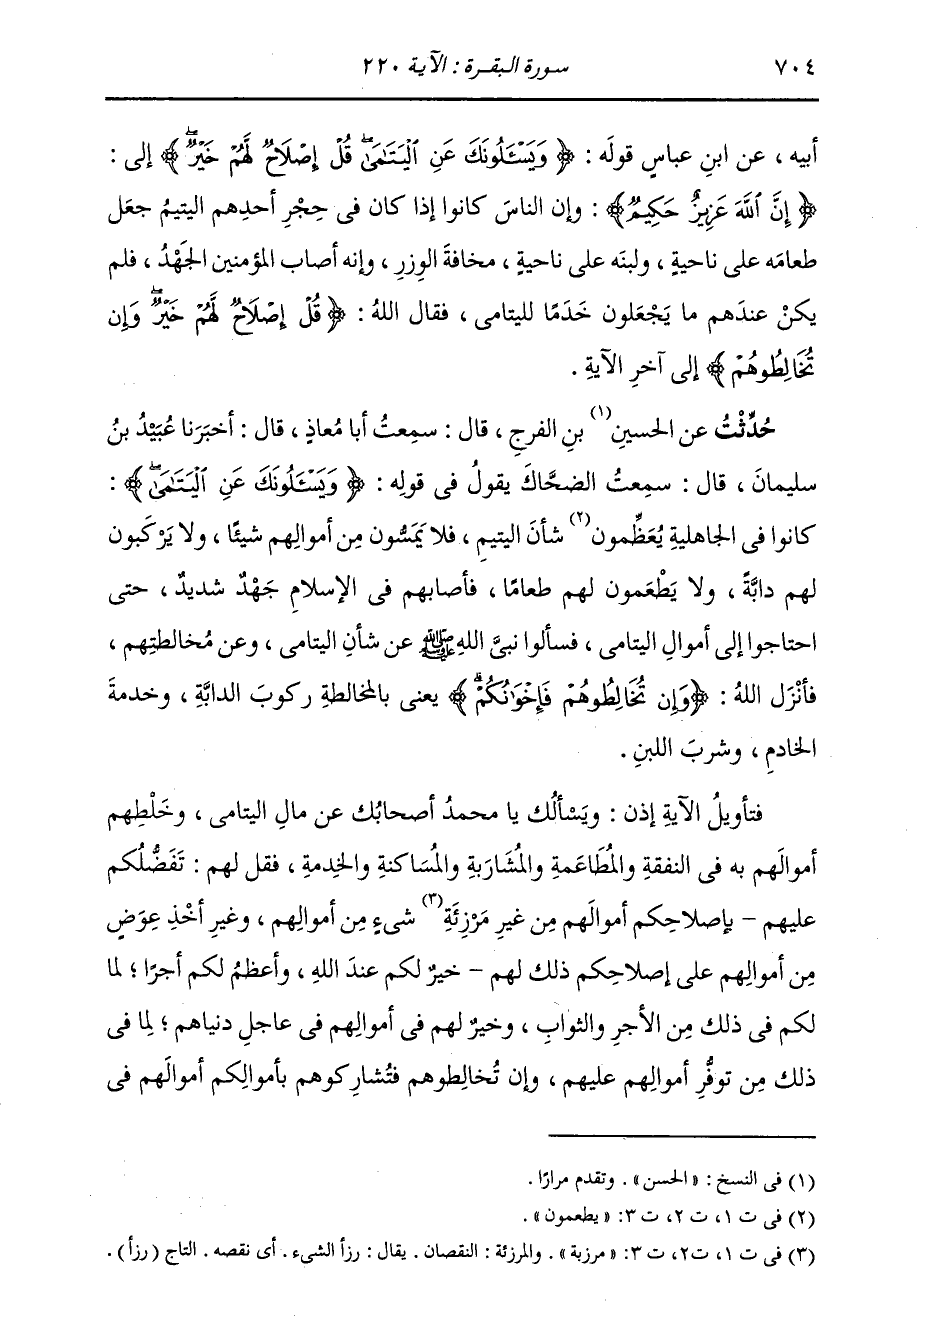 ٧٠٤ سورة البقرة : الآية ٢٢٠
أبيه ، عن ابنِ عباسٍ قولَه : ﴿ وَيَسْـَٔلُونَكَ عَنِ ٱلْيَتَـٰمَىٰۖ قُلْ إِصْلَاحٌ لَّهُمْ خَيْرٌۖ ﴾ إلى :
﴿ إِنَّ ٱللَّهَ عَزِيزٌ حَكِيمٌ﴾ : وإن الناسَ كانوا إذا كان فى حِجْرِ أحدِهم اليتيمُ جعَل
طعامَه على ناحيةٍ ، ولبنَه على ناحيةٍ ، مخافةَ الوِزرِ ، وإنه أصاب المؤمنين الجَهْدُ ، فلم
يكنْ عندَهم ما يَجْعَلون خَدَمًا لليتامى ، فقال اللهُ : ﴿ قُلْ إِصْلَاحٌ لَّهُمْ خَيْرٌۖ وَإِن
تُخَالِطُوهُمْ ﴾ إلى آخرِ الآيةِ .
حُدِّثْتُ عن الحسينِ(١) بنِ الفرجِ ، قال : سمِعتُ أبا مُعاذٍ ، قال : أخبَرَنا عُبَيْدُ بنُ
سليمانَ ، قال : سمِعتُ الضحَّاكَ يقولُ فى قولِه : ﴿ وَيَسْـَٔلُونَكَ عَنِ ٱلْيَتَـٰمَىٰۖ ﴾ :
كانوا فى الجاهليةِ يُعَظِّمون(٢) شأنَ اليتيمِ ، فلا يَمَسُّون مِن أموالِهم شيئًا ، ولا يَرْكَبون
لهم دابَّةً ، ولا يَطْعَمون لهم طعامًا ، فأصابهم فى الإسلامِ جَهْدٌ شديدٌ ، حتى
احتاجوا إلى أموالِ اليتامى ، فسألوا نبىَّ اللهِ ﷺ عن شأنِ اليتامى ، وعن مُخالطتِهم ،
فأنْزَل اللهُ : ﴿وَإِن تُخَالِطُوهُمْ فَإِخْوَٰنُكُمْۚ ﴾ يعنى بالمخالطةِ ركوبَ الدابَّةِ ، وخدمةَ
الخادمِ ، وشربَ اللبنِ .
فتأويلُ الآيةِ إذن : ويَسْألُك يا محمدُ أصحابُك عن مالِ اليتامى ، وخَلْطِهم
أموالَهم به فى النفقةِ والمُطَاعَمةِ والمُشَارَبةِ والمُسَاكنةِ والخِدمةِ ، فقل لهم : تَفَضُّلُكم
عليهم – بإصلاحِكم أموالَهم مِن غيرِ مَرْزِئَةِ(٣) شىءٍ مِن أموالِهم ، وغيرِ أخْذِ عِوَضٍ
مِن أموالِهم على إصلاحِكم ذلك لهم – خيرٌ لكم عندَ اللهِ ، وأعظمُ لكم أجرًا ؛ لما
لكم فى ذلك مِن الأجرِ والثوابِ ، وخيرٌ لهم فى أموالِهم فى عاجلِ دنياهم ؛ لِما فى
ذلك مِن توفُّرِ أموالِهم عليهم ، وإن تُخالِطوهم فتُشارِكوهم بأموالِكم أموالَهم فى
(١) فى النسخ : « الحسن » . وتقدم مرارًا .
(٢) فى ت ١، ت ٢، ت ٣: « يطعمون » .
(٣) فى ت ١، ت٢، ت ٣: « مرزبة » . والمرزئة : النقصان . يقال : رزأ الشىء . أى نقصه . التاج (رزأ) .